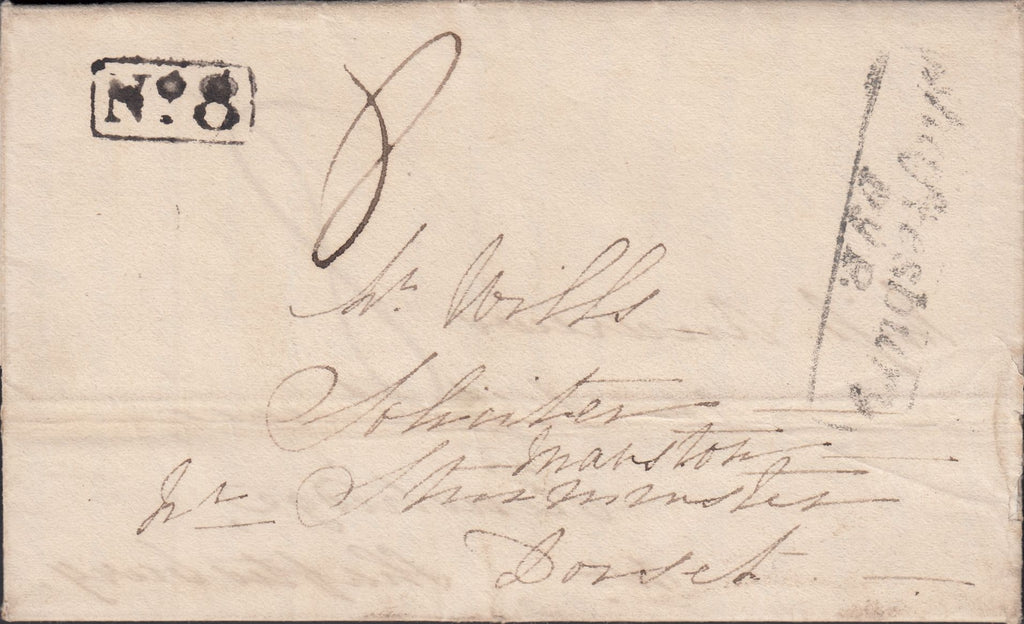 No. 8
8
Mr. Wills
Solicitor
Manston
Nr Sturminster
Dorset
Shaftesbury